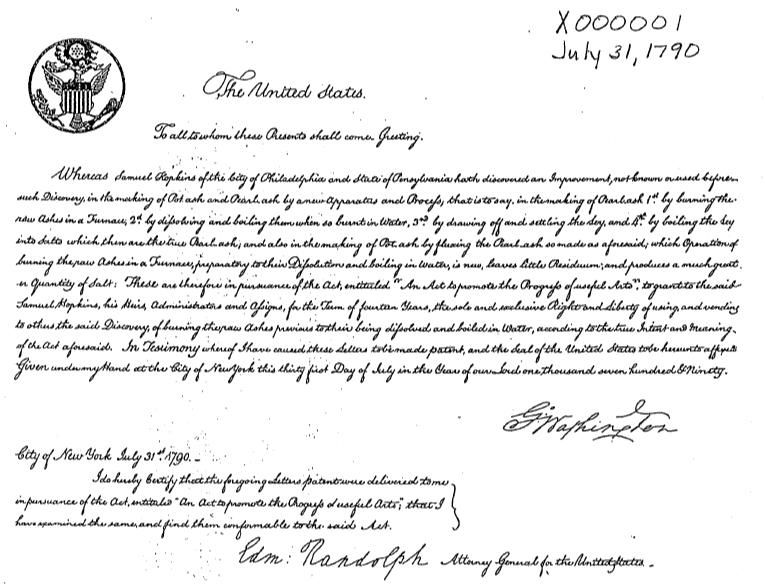 X000001
July 31, 1790
The United States.
To all to whom these Presents shall come, Greeting.
Whereas Samuel Hopkins of the City of Philadelphia and State of Pensylvania hath discovered an Improvement, not known or used before
such Discovery, in the making of Pot ash and Pearl ash by a new Apparatus and Process; that is to say, in the making of Pearl ash 1st. by burning the
raw Ashes in a Furnace, 2d. by dissolving and boiling them when so burnt in Water, 3rd. by drawing off and settling the Ley, and 4th. by boiling the Ley
into Salts which then are the true Pearl ash; and also in the making of Pot ash by fluxing the Pearl ash so made as aforesaid; which Operation of
burning the raw Ashes in a Furnace, preparatory to their Dissolution and boiling in Water, is new, leaves little Residuum; and produces a much great-
er Quantity of Salt: These are therefore in pursuance of the Act, entituled "An Act to promote the Progress of useful Arts", to grant to the said
Samuel Hopkins, his Heirs, Administrators and Assigns, for the Term of fourteen Years, the sole and exclusive Right and Liberty of using, and vending
to others the said Discovery, of burning the raw Ashes previous to their being dissolved and boiled in Water, according to the true Intent and Meaning
of the Act aforesaid. In Testimony whereof I have caused these Letters to be made patent, and the Seal of the United States to be hereunto affixed
Given under my Hand at the City of New York this thirty first Day of July in the Year of our Lord one thousand seven hundred & Ninety.
G. Washington
City of New York July 31st. 1790. -
I do hereby Certify that the foregoing Letters patent were delivered to me
in pursuance of the Act, entituled "An Act to promote the Progress of useful Arts"; that I
have examined the same, and find them conformable to the said Act.
Edm: Randolph Attorney General for the United States. -